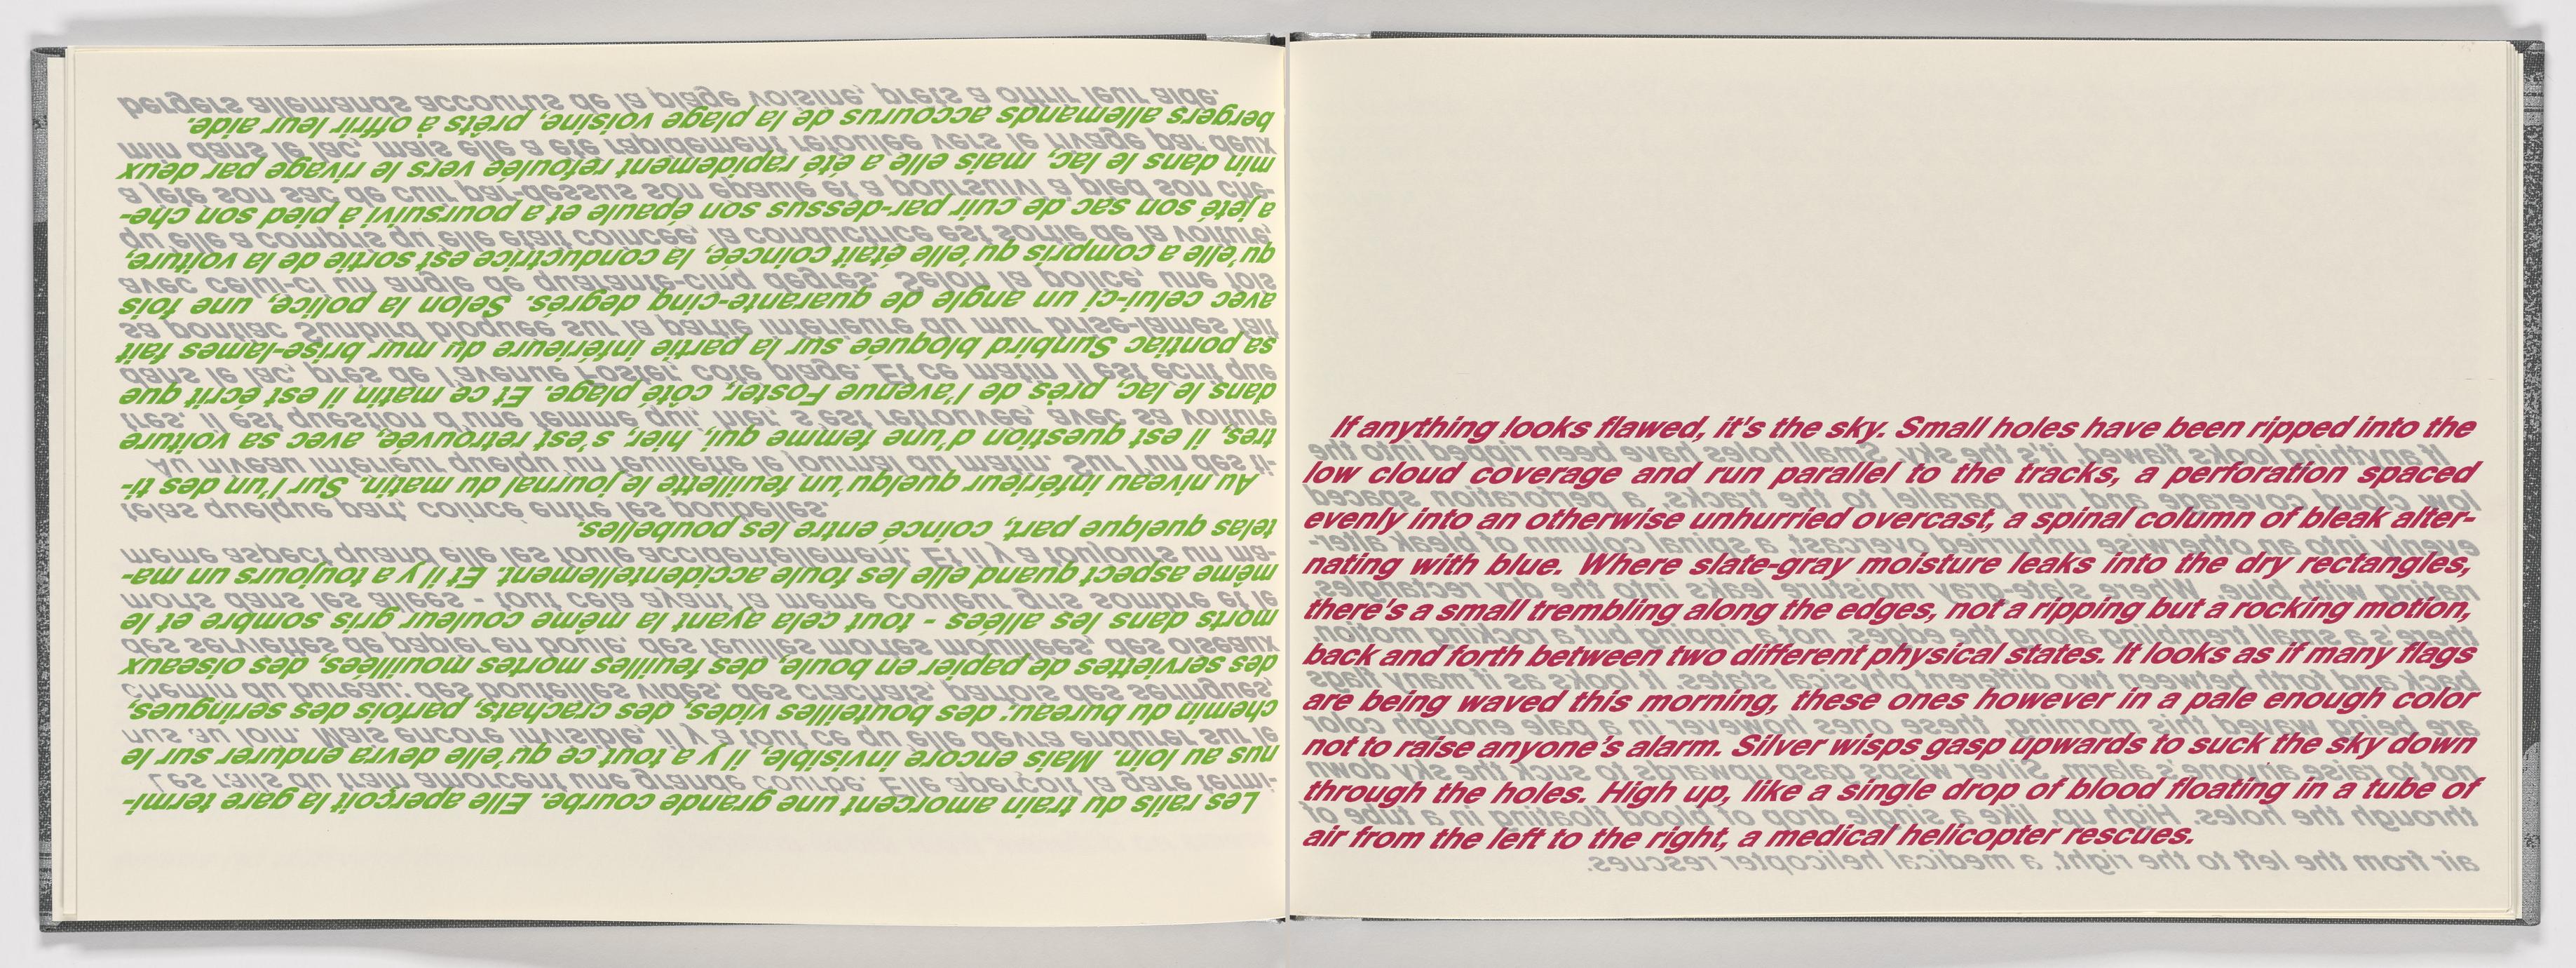 Les rails du train amorcent une grande courbe. Elle aperçoit la gare termi-
nus au loin. Mais encore invisible, il y a tout ce qu'elle devra endurer sur le
chemin du bureau: des bouteilles vides, des crachats, parfois des seringues,
des serviettes de papier en boule, des feuilles mortes mouillées, des oiseaux
morts dans les allées - tout cela ayant la même couleur gris sombre et le
même aspect quand elle les foule accidentellement. Et il y a toujours un ma-
telas quelque part, coincé entre les poubelles.
Au niveau inférieur quelqu'un feuillette le journal du matin. Sur l'un des ti-
tres, il est question d'une femme qui, hier, s'est retrouvée, avec sa voiture
dans le lac, près de l'avenue Foster, côté plage. Et ce matin il est écrit que
sa pontiac Sunbird bloquée sur la partie inférieure du mur brise-lames fait
avec celui-ci un angle de quarante-cinq degrés. Selon la police, une fois
qu'elle a compris qu'elle était coincée, la conductrice est sortie de la voiture,
a jeté son sac de cuir par-dessus son épaule et a poursuivi à pied son che-
min dans le lac, mais elle a été rapidement refoulée vers le rivage par deux
bergers allemands accourus de la plage voisine, prêts à offrir leur aide.
If anything looks flawed, it's the sky. Small holes have been ripped into the
low cloud coverage and run parallel to the tracks, a perforation spaced
evenly into an otherwise unhurried overcast, a spinal column of bleak alter-
nating with blue. Where slate-gray moisture leaks into the dry rectangles,
there's a small trembling along the edges, not a ripping but a rocking motion,
back and forth between two different physical states. It looks as if many flags
are being waved this morning, these ones however in a pale enough color
not to raise anyone's alarm. Silver wisps gasp upwards to suck the sky down
through the holes. High up, like a single drop of blood floating in a tube of
air from the left to the right, a medical helicopter rescues.